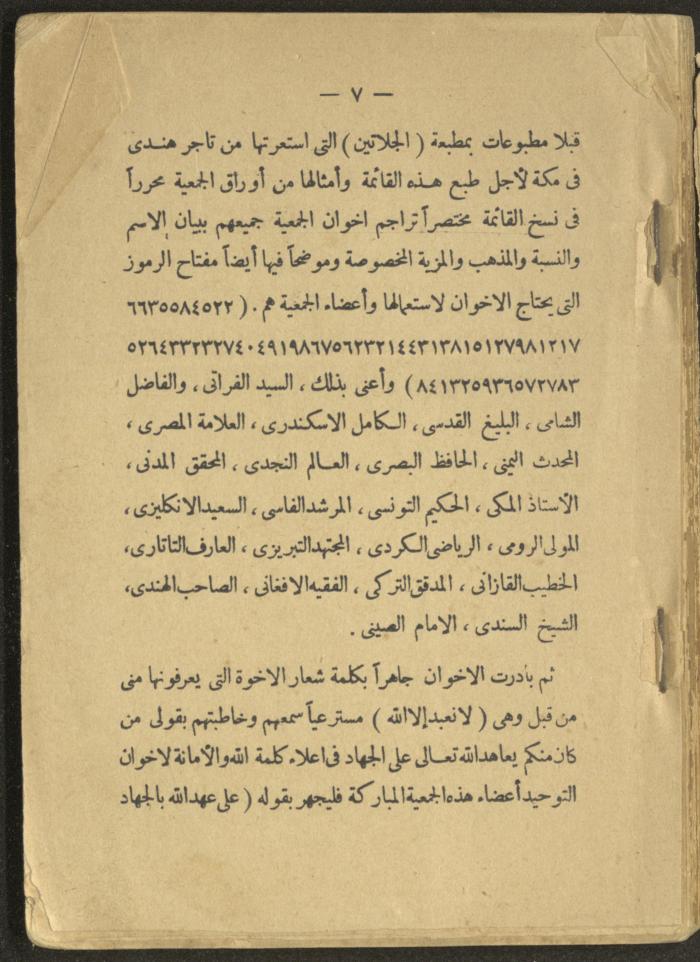 — ٧ —
قبلا مطبوعات بمطبعة ( الجلاتين ) التى استعرتها من تاجر هندى
فى مكة لأجل طبع هذه القائمة وأمثالها من أوراق الجمعية محرراً
فى نسخ القائمة مختصراً تراجم اخوان الجمعية جميعهم ببيان الاسم
والنسبة والمذهب والمزية المخصوصة وموضحاً فيها أيضاً مفتاح الرموز
التى يحتاج الاخوان لاستعمالها وأعضاء الجمعية هم . ( ٦٦٣٥٥٨٤٥٢٢
٥٢٦٤٣٣٢٣٢٧٤٠٤٩١٩٨٦٧٥٦٢٣٢١٤٤٣١٣٨١٥١٢٧٩٨١٢١٧
٨٤١٣٢٥٩٣٦٥٧٢٧٨٣ ) وأعنى بذلك ، السيد الفراتى ، والفاضل
الشامى ، البليغ القدسى ، الكامل الاسكندرى ، العلامة المصرى ،
المحدث اليمنى ، الحافظ البصرى ، العالم النجدى ، المحقق المدنى ،
الأستاذ المكى ، الحكيم التونسى ، المرشد الفاسى ، السعيد الانكليزى ،
المولى الرومى ، الرياضى الكردى ، المجتهد التبريزى ، العارف التاتارى ،
الخطيب القازانى ، المدقق التركى ، الفقيه الافغانى ، الصاحب الهندى ،
الشيخ السندى ، الامام الصينى .
ثم بادرت الاخوان جاهراً بكلمة شعار الاخوة التى يعرفونها منى
من قبل وهى ( لا نعبد إلا الله ) مسترعياً سمعهم وخاطبتهم بقولى من
كان منكم يعاهد الله تعالى على الجهاد فى اعلاء كلمة الله والأمانة لاخوان
التوحيد أعضاء هذه الجمعية المباركة فليجهر بقوله ( على عهد الله بالجهاد